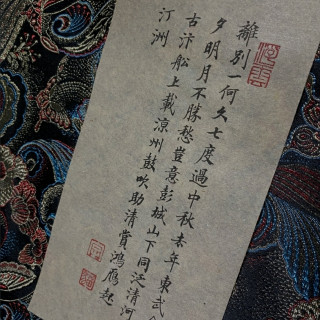 離別一何久七度過中秋去年東武今
夕明月不勝愁豈意彭城山下同泛清河
古汴船上載涼州鼓吹助清賞鴻雁起
汀洲